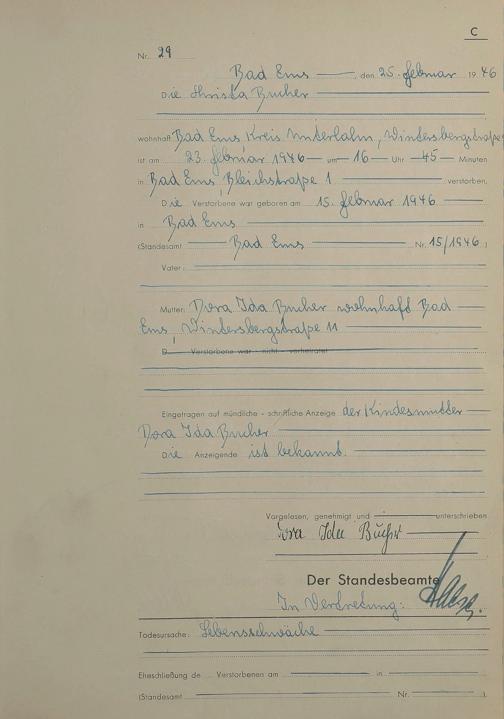 C
Nr. 29
Bad Ems, den 25. Februar 1946
Die Christa Bucher
wohnhaft Bad Ems, Kreis Unterlahn, Wintersbergstraße
ist am 23. Februar 1946 um 16 Uhr 45 Minuten
in Bad Ems, Bleichstraße 1 verstorben.
Die Verstorbene war geboren am 15. Februar 1946
in Bad Ems
(Standesamt Bad Ems Nr. 15/1946)
Vater:
Mutter: Dora Ida Bucher wohnhaft Bad
Ems, Wintersbergstraße 11
D Verstorbene war - nicht - verheiratet
Eingetragen auf mündliche - schriftliche Anzeige der Kindesmutter
Dora Ida Bucher
Die Anzeigende ist bekannt.
Vorgelesen, genehmigt und unterschrieben
Dora Ida Bucher
Der Standesbeamte
In Vertretung:
Todesursache: Lebensschwäche
Eheschließung de Verstorbenen am in
(Standesamt Nr. ).